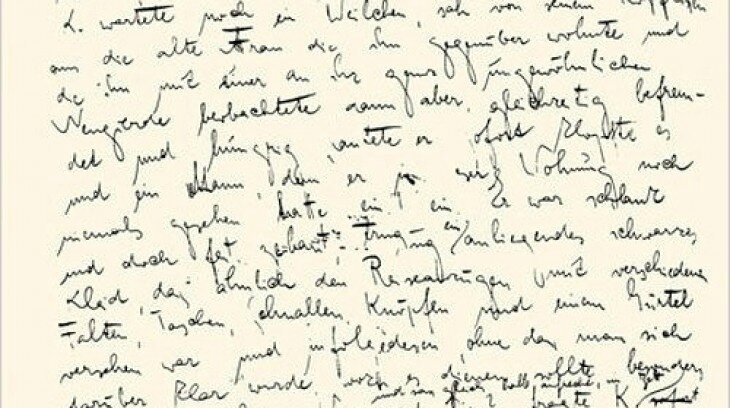 K. wartete noch ein Weilchen, sah von seinem Kopfkissen
aus die alte Frau die ihm gegenüber wohnte und
die ihn mit einer an ihr ganz ungewöhnlichen
Neugierde beobachtete dann aber, gleichzeitig befrem-
det und hungrig, läutete er sofort klopfte es
und ein Mann, den er in Wohnung noch
niemals gesehen hatte ein Er war schlank
und doch fest gebaut, trug ein anliegendes schwarzes
Kleid, das ähnlich den Reiseanzügen mit verschiedenen
Falten, Taschen, Schnallen, Knöpfen und einem Gürtel
versehen war und infolgedessen, ohne dass man sich
darüber klar wurde, wozu es dienen sollte, besonders
und sass gleich halb aufrecht im Bett
fragte K